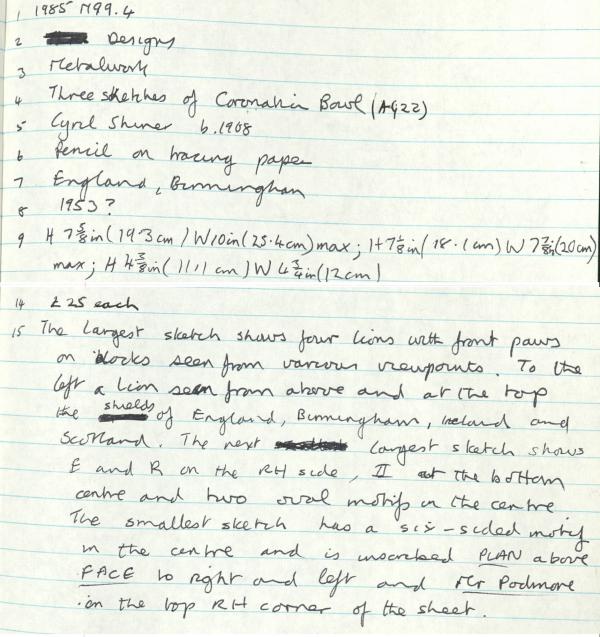 1 1985 M99.4
2 Designs
3 Metalwork
4 Three sketches of Coronation Bowl (A922)
5 Cyril Shiner b.1908
6 Pencil on tracing paper
7 England, Birmingham
8 1953?
9 H 7 5/8 in (19.3 cm) W 10 in (25.4 cm) max; H 7 1/8 in (18.1 cm) W 7 7/8 in (20 cm)
max; H 4 3/8 in (11.1 cm) W 4 3/4 in (12 cm)
14 £25 each
15 The largest sketch shows four lions with front paws
on blocks seen from various viewpoints. To the
left a lion seen from above and at the top
the shields of England, Birmingham, Ireland and
Scotland. The next largest sketch shows
E and R on the RH side, II at the bottom
centre and two oval motifs in the centre.
The smallest sketch has a six-sided motif
in the centre and is inscribed PLAN above
FACE to right and left and Mr Podmore
in the top RH corner of the sheet.